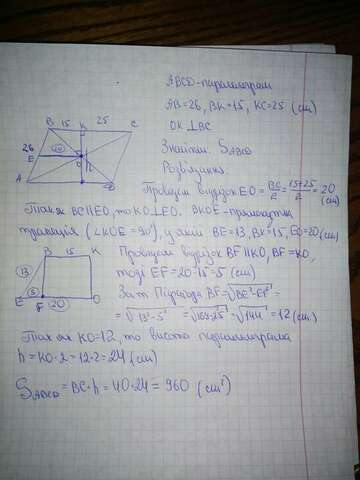 ABCD-паралелограм
AB=26, BK=15, KC=25 (см)
OK⊥BC
Знайти: S_ABCD
Розв'язання.
B 15 K 25 C
26
E 20 O h
A D
Проведем відрізок EO = BC/2 = (15+25)/2 = 20 (см)
Так як BC||EO, то KO⊥EO. BKOE-прямокутна
трапеція (∠KOE = 90°), у якій BE=13, BK=15, EO=20(см)
B 15 K
13
E 5 F 20 O
Проведем відрізок BF||KO, BF=KO,
тоді EF=20-15=5 (см)
За т. Піфагора BF=√BE²-EF²=
=√13²-5² =√169-25=√144=12 (см)
Так як KO=12, то висота паралелограма
h=KO·2=12·2=24 (см)
S_ABCD=BC·h=40·24=960 (см²)